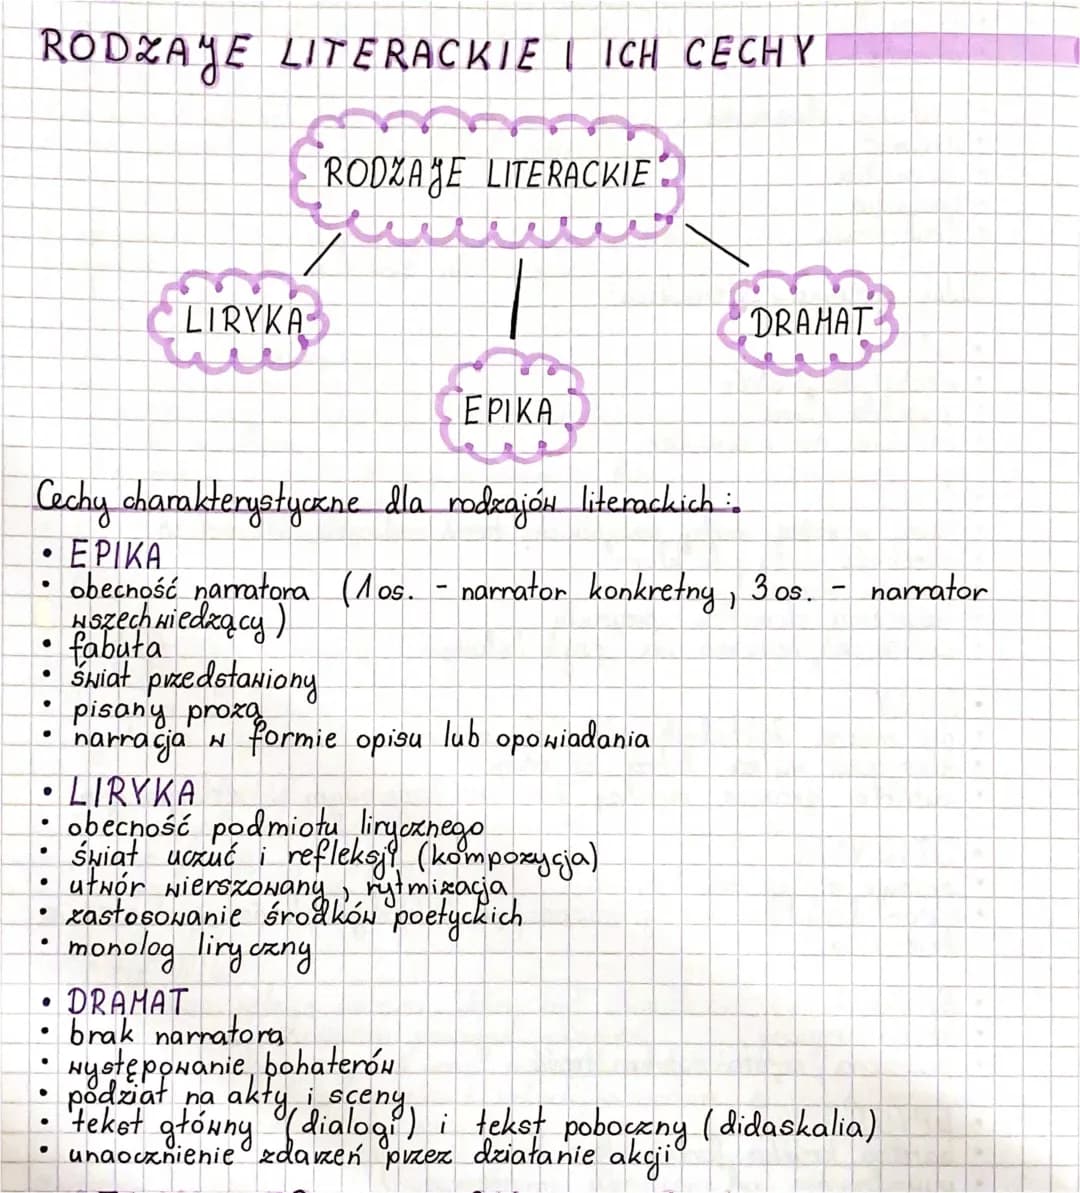 RODZAJE LITERACKIE I ICH CECHY
RODZAJE LITERACKIE
LIRYKA
DRAMAT
EPIKA
Cechy charakterystyczne dla rodzajów literackich:
• EPIKA
• obecność narratora (1 os. - narrator konkretny, 3 os. - narrator
wszechwiedzący)
• fabuła
• świat przedstawiony
• pisany prozą
• narracja w formie opisu lub opowiadania
• LIRYKA
• obecność podmiotu lirycznego
• świat uczuć i refleksji (kompozycja)
• utwór wierszowany, rytmizacja
• zastosowanie środków poetyckich
• monolog liryczny
• DRAMAT
• brak narratora
• występowanie bohaterów
• podział na akty i sceny
• tekst główny (dialogi) i tekst poboczny (didaskalia)
• unaocznienie zdarzeń przez działanie akcji